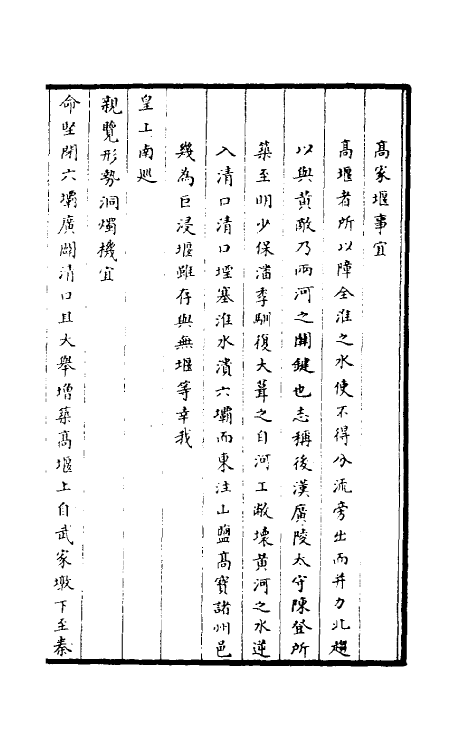 高家堰事宜
高堰者所以障全淮之水使不得分流旁出而并力北趨
以與黄敵乃兩河之關鍵也志稱後漢廣陵太守陳登所
築至明少保潘季馴復大葺之自河工敝壞黄河之水逆
入清口清口堙塞淮水潰六壩而東注山鹽高寳諸州邑
幾為巨浸堰雖存與無堰等幸我
皇上南巡
親覽形勢洞燭機宜
命坚閉六壩廣闢清口且大舉增築高堰上自武家墩下至秦